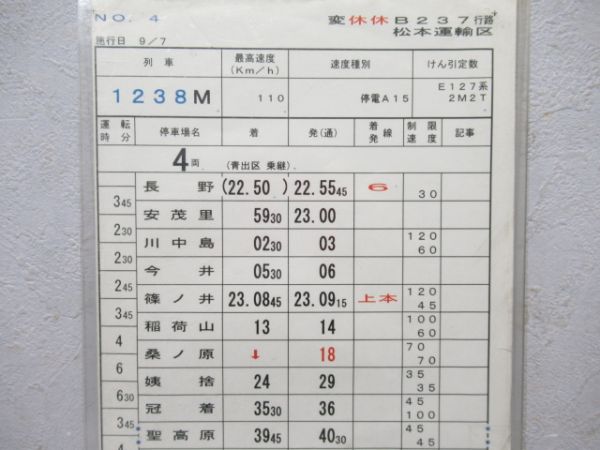 NO. 4 変休休B237行路
施行日 9/7 松本運輸区
列車 最高速度(Km/h) 速度種別 けん引定数
1238M 110 停電A15 E127系 2M2T
運転時分 停車場名 着 発(通) 着発線 制限速度 記事
4両 (青出区 乗継)
長野 (22.50 ) 22.5545 6 30
345
安茂里 5930 23.00
230
川中島 0230 03 120 60
230
今井 0530 06
245
篠ノ井 23.0845 23.0915 上本 120 45
345
稲荷山 13 14 100 60
4
桑ノ原 ↓ 18 70 70
6
姨捨 24 29 35 35
630
冠着 3530 36 45 100
345
聖高原 3945 4030 45 45
4